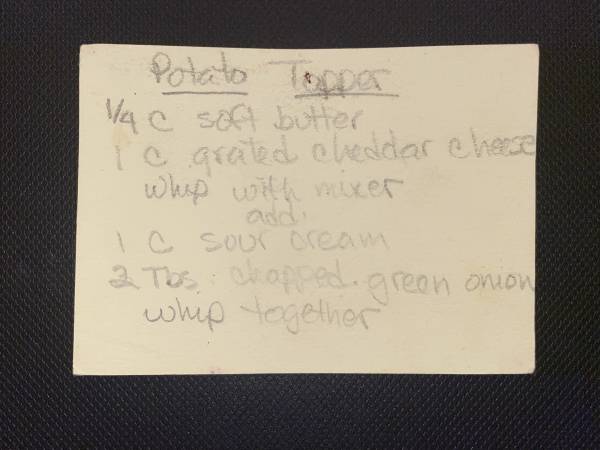 Potato Topper
1/4 C soft butter
1 C grated cheddar cheese
whip with mixer
add
1 C sour cream
2 Tbs. chopped green onion
whip together